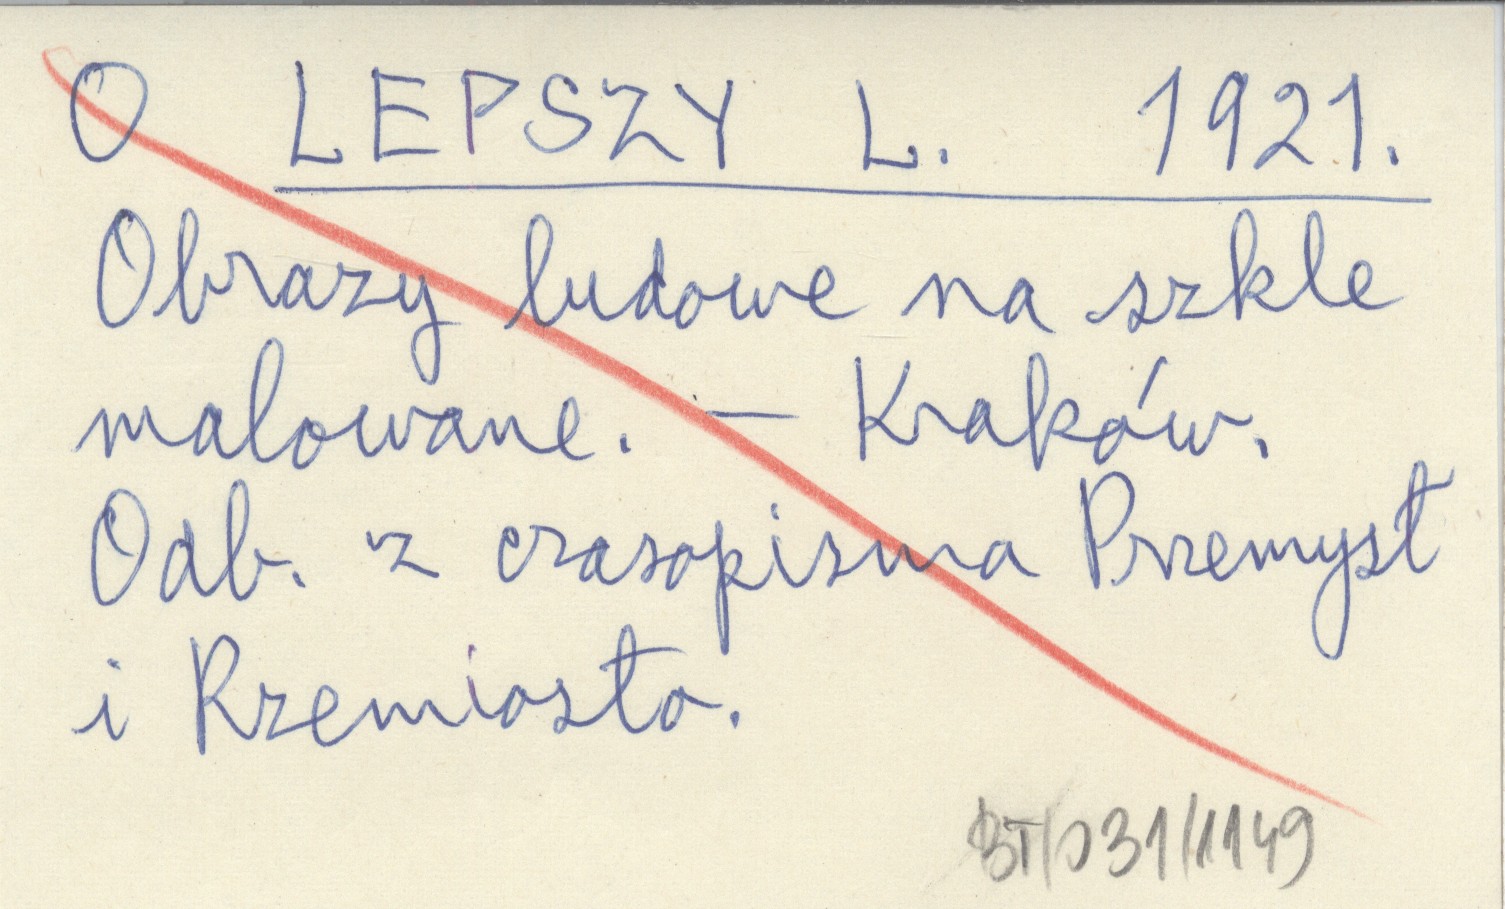 O LEPSZY L. 1921.
Obrazy ludowe na szkle
malowane. — Kraków.
Odb. z czasopisma Przemysł
i Rzemiosło.
BT/031/1149